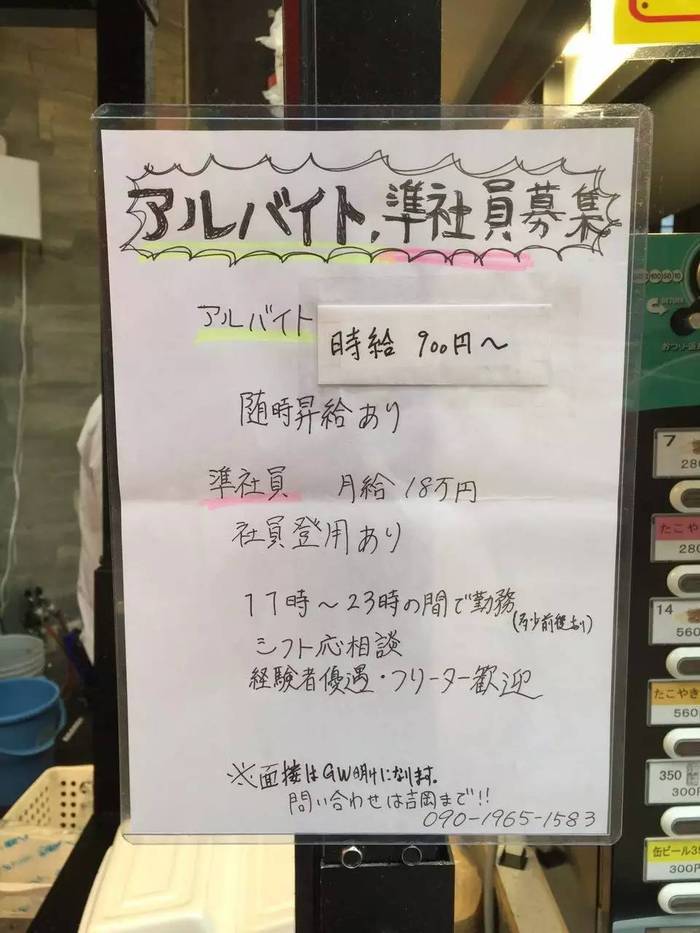 アルバイト、準社員募集
アルバイト 時給 900円～
随時昇給あり
準社員 月給18万円
社員登用あり
11時～23時の間で勤務
(多少前後あり)
シフト応相談
経験者優遇・フリーター歓迎
※面接はGW明けになります。
問い合わせは吉岡まで!!
090-1965-1583
RETURN
7
280
たこや
280
14
560
たこやき
560
350
300円
缶ビール35
300円